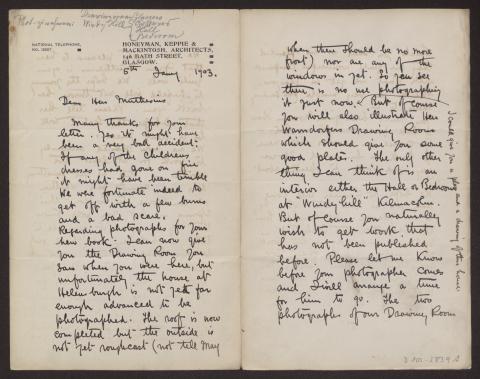 Drawingroom
Windy Hill
Hall
Bedroom
NATIONAL TELEPHONE,
NO. 3887
HONEYMAN, KEPPIE &
MACKINTOSH, ARCHITECTS,
140 BATH STREET,
GLASGOW.
5th Jany 1903.
Dear Herr Muthesius
Many thanks for your
letter. Yes it might have
been a very bad accident:
If any of the childrens
dresses had gone on fire
it might have been terrible
We were fortunate indeed to
get off with a few burns
and a bad scare.
Regarding photographs for your
new book. I can now give
you the Drawing Room you
saw when you were here, but
unfortunately the house at
Helensburgh is not yet far
enough advanced to be
photographed. The roof is now
completed but the outside is
not yet roughcast (not till May
when there should be no more
frost) nor are any of the
windows in yet. So you see
there is no use photographing
it just now. But of course
you will also illustrate Herr
Warndorfers Drawing Room
which should give you some
good plates. The only other
thing I can think of is an
interior either the Hall or Bedroom
at "Windyhill" Kilmacolm.
But of course you naturally
wish to get work that
has not been published
before. Please let me know
before your photographer comes
and I will arrange a time
for him to go. The two
photographs of our Drawing Room
I could give you a plan and a drawing of the house